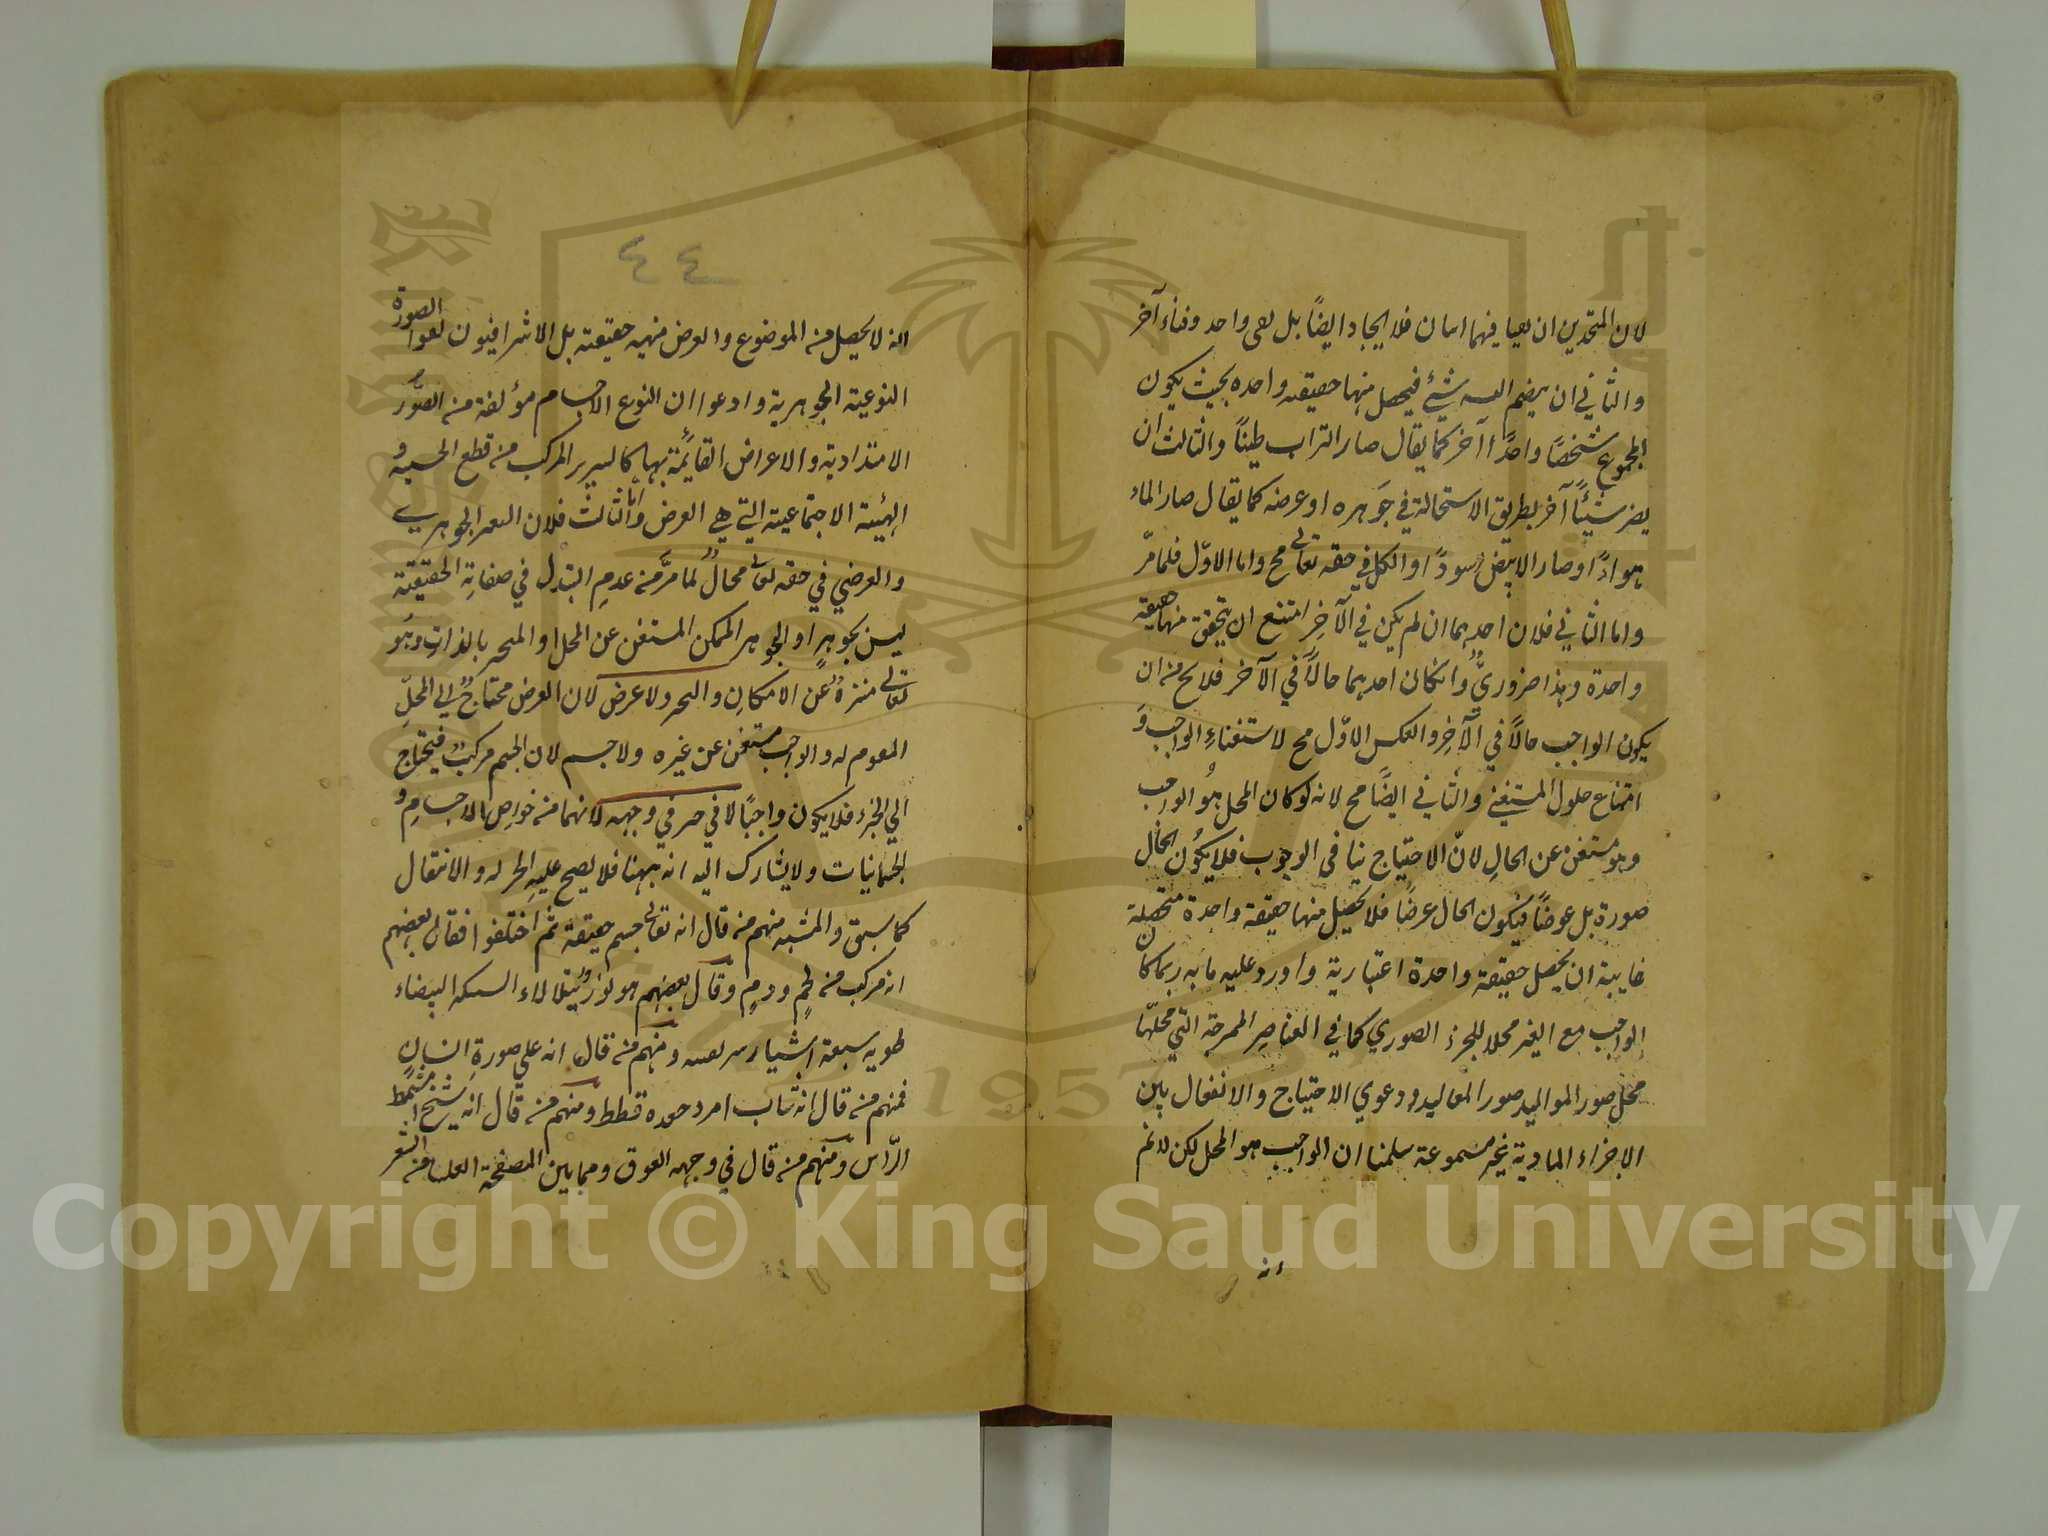 لان المتحدين ان بقيا فهما اثنان فلا ايجاد ايضاً بل بقي واحد وفناء آخر
والثاني ان ينضم اليه شيئ فيحصل منهما حقيقه واحده بحيث يكون
المجموع شخصاً واحداً آخر كما يقال صار التراب طيناً والثالث ان
يصر شيئاً آخر بطريق الاستحالة في جوهره او عرضه كما يقال صار الماء
هواءً او صار الابيض اسوداً والكل في حقه تعالى مح واما الاوّل فلما مرّ
واما الثاني فلان احدهما ان لم يكن في الآخر امتنع ان يتحقق منهما حقيقة
واحدة وهذا ضروريٌ وان كان احدهما حالاً في الآخر فلا يخ من ان
يكون الواجب حالاً في الآخر والعكس الاوّل مح لاستغناءِ الواجب وَ
امتناع حلول المستغني والثاني ايضاً مح لانه لو كان المحل هو الواجب
وهو مستغن عن الحالِ لانّ الاحتياج ينافي الوجوب فلا يكون الحال
صورة بل عرضاً فيكون الحال عرضاً فلا يحصل منهما حقيقة واحدة متحصلة
غايبة ان يحصل حقيقة واحدة اعتبارية واورد عليه مابه ربما كان
الواجب مع الغير محلا للجزء الصوري كما في العناصر الممزجة التي محلّها
محل صور المواليد صور المواليد ودعوي الاحتياج والانفعال بين
الاجزاء المادية غير مسموعة سلمنا ان الواجب هو المحل لكن لا نم
انه
٤٤
انه لا يحصل من الموضوع والعرض مهية حقيقته بل الاشراقيون نفوا الصورة
النوعية الجوهرية وادعوا ان النوع الاجسام مؤلفة من الصُّوَر
الامتدادية والاعراض القايمة بها كالسرير المركب من قطع الخسبة و
الهيئة الاجتماعية التي هي العرض وامّا الثالث فلان التغير الجوهري
والعرضي في حقه تعالى محالٌ لما مرَّ من عدمِ التبدل في صفاتِه الحقيقة
ليس بجوهرٍ او الجوهر الممكن المستغن عن المحل او المتحيز بالذات وهو
تعالى منزهٌ عن الامكانِ والتحيز ولا عرض لان العرض محتاجٌ الي المحلِّ
المقوم له والواجب مستغن عن غيره ولا جسم لان الجسم مركبٌ فيحتاج
الي الجزء فلا يكون واجبًا لا في حيز في وجهه لانهما من خواص الاجسامِ و
الجسمانيات ولا يشارك اليه انه ههنا فلا يصح عليهِ الحركه والانتقال
كما سبق والمشبه منهم من قال انه تعالى جسم حقيقة ثم اختلفوا فقال بعضهم
انه مركب من لحمٍ ودمٍ وقال بعضهم هو نورٌ يتلالاء السبيكه البيضاء
طوله سبعة اشبار من نفسه ومنهم من قال انه علي صورة انسانٍ
فمنهم من قال انه شاب امرد جعده قطط ومنهم من قال انه شيخ اشمط
الرّاس ومنهم من قال في وجهه الفوق ومماسّ للصفحة العليا من العرش